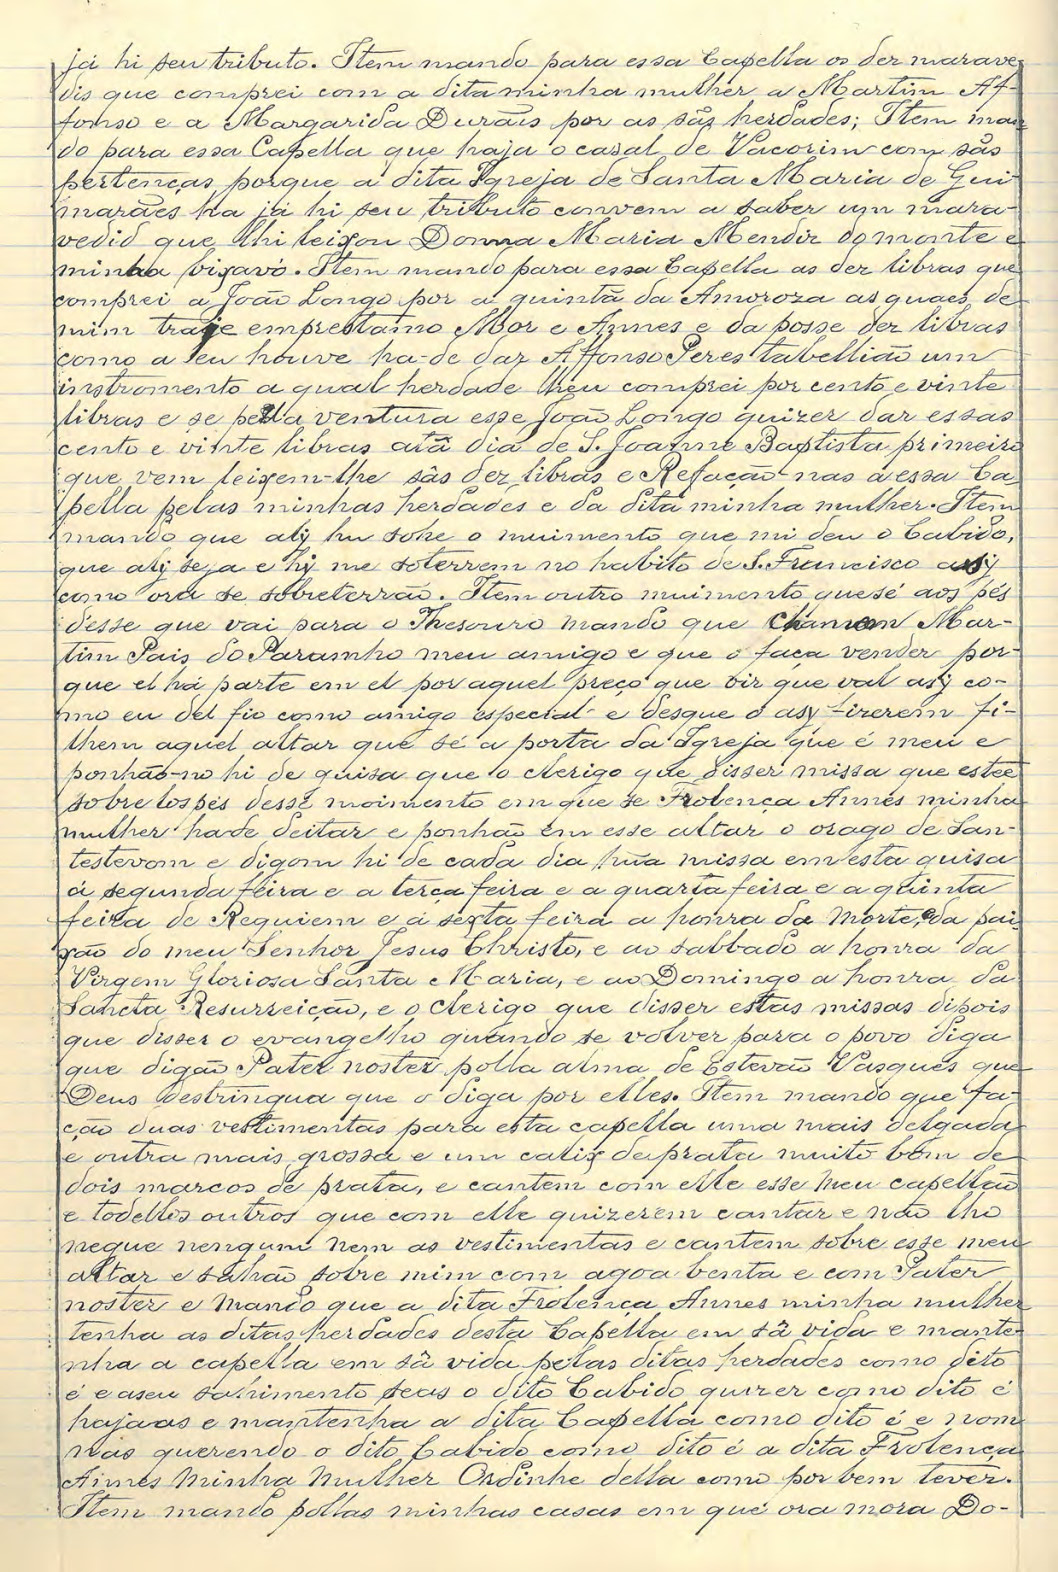 já hi seu tributo. Item mando para essa Capella os dez marave
dis que comprei com a dita minha mulher a Martim Af-
fonso e a Margarida Durães por as sãs herdades; Item man
do para essa Capella que haja o casal de Vacorim com sãs
pertenças, porque a dita Igreja de Santa Maria de Gui-
marães ha já hi seu tributo convem a saber um mara-
vedid que lhi leixou Donna Maria Mendiz do monte e
minha bizavó. Item mando para essa Capella as dez libras que
comprei a João Longo por a quintã da Amoroza as quaes de
mim trage emprestamo Mor e Annes e da posse dez libras
como a eu houve ha-de dar Affonso Peres tabellião um
instromento a qual herdade lheu comprei por cento e vinte
libras e se pella ventura esse João Longo quizer dar essas
cento e vinte libras atã dia de S. Joanne Baptista primeiro
que vem leixem-lhe sãs dez libras e Refação-nas a essa Ca
pella pelas minhas herdades e da dita minha mulher. Item
mando que alj hu sohe o muimento que mi deu o Cabido,
que alj seja e hj me soterrem no habito de S. Francisco assj
como ora se sobreterrão. Item outro muimento que sé aos pés
desse que vai para o Thesouro mando que chamem Mar-
tim Pais do Paramho meu amigo e que o faça vender por-
que el há parte em el por aquel preço que vir que val asj co-
mo eu del fio como amigo especial e desque o asj fizerem fi-
lhem aquel altar que sé a porta da Igreja que é meu e
ponhão-no hi de guisa que o clerigo que disser missa que esteé
sobre los pés desse moimento em que se Frolença Annes minha
mulher hade deitar e ponhão em esse altar o orago de San-
testevom e digom hi de cada dia hũa missa em esta guisa
á segunda feira e a terça feira e a quarta feira e a quinta
feira de Requiem e á sexta feira a honra da Morte, e da pai-
xão do meu Senhor Jesus Christo, e ao sabbado a honra da
Virgem Gloriosa Santa Maria, e ao Domingo a honra da
Sancta Resurreição, e o clerigo que disser estas missas dipois
que disser o evangelho quando se volver para o povo diga
que digão Pater noster polla alma de Estevão Vasques que
Deus destringua que o diga por elles. Item mando que fa-
ção duas vestimentas para esta capella uma mais delgada
e outra mais grossa e um calix de prata muito bom de
dois marcos de prata, e cantem com elle esse meu capellão
e todellos outros que com elle quizerem cantar e não lho
negue nengum nem as vestimentas e cantem sobre esse meu
altar e sahão sobre mim com agoa benta e com Pater
noster e Mando que a dita Frolença Annes minha mulher
tenha as ditas herdades desta Capella em sã vida e mante-
nha a capella em sã vida pelas ditas herdades como dito
é e a seu sahimento seas o dito Cabido quizer como dito é
haja-as e mantenha a dita Capella como dito é e nom
nas querendo o dito Cabido como dito é a dita Frolença
Annes Minha Mulher Ordinhe della como por bem tever.
Item mando pollas minhas casas em que ora mora Do-